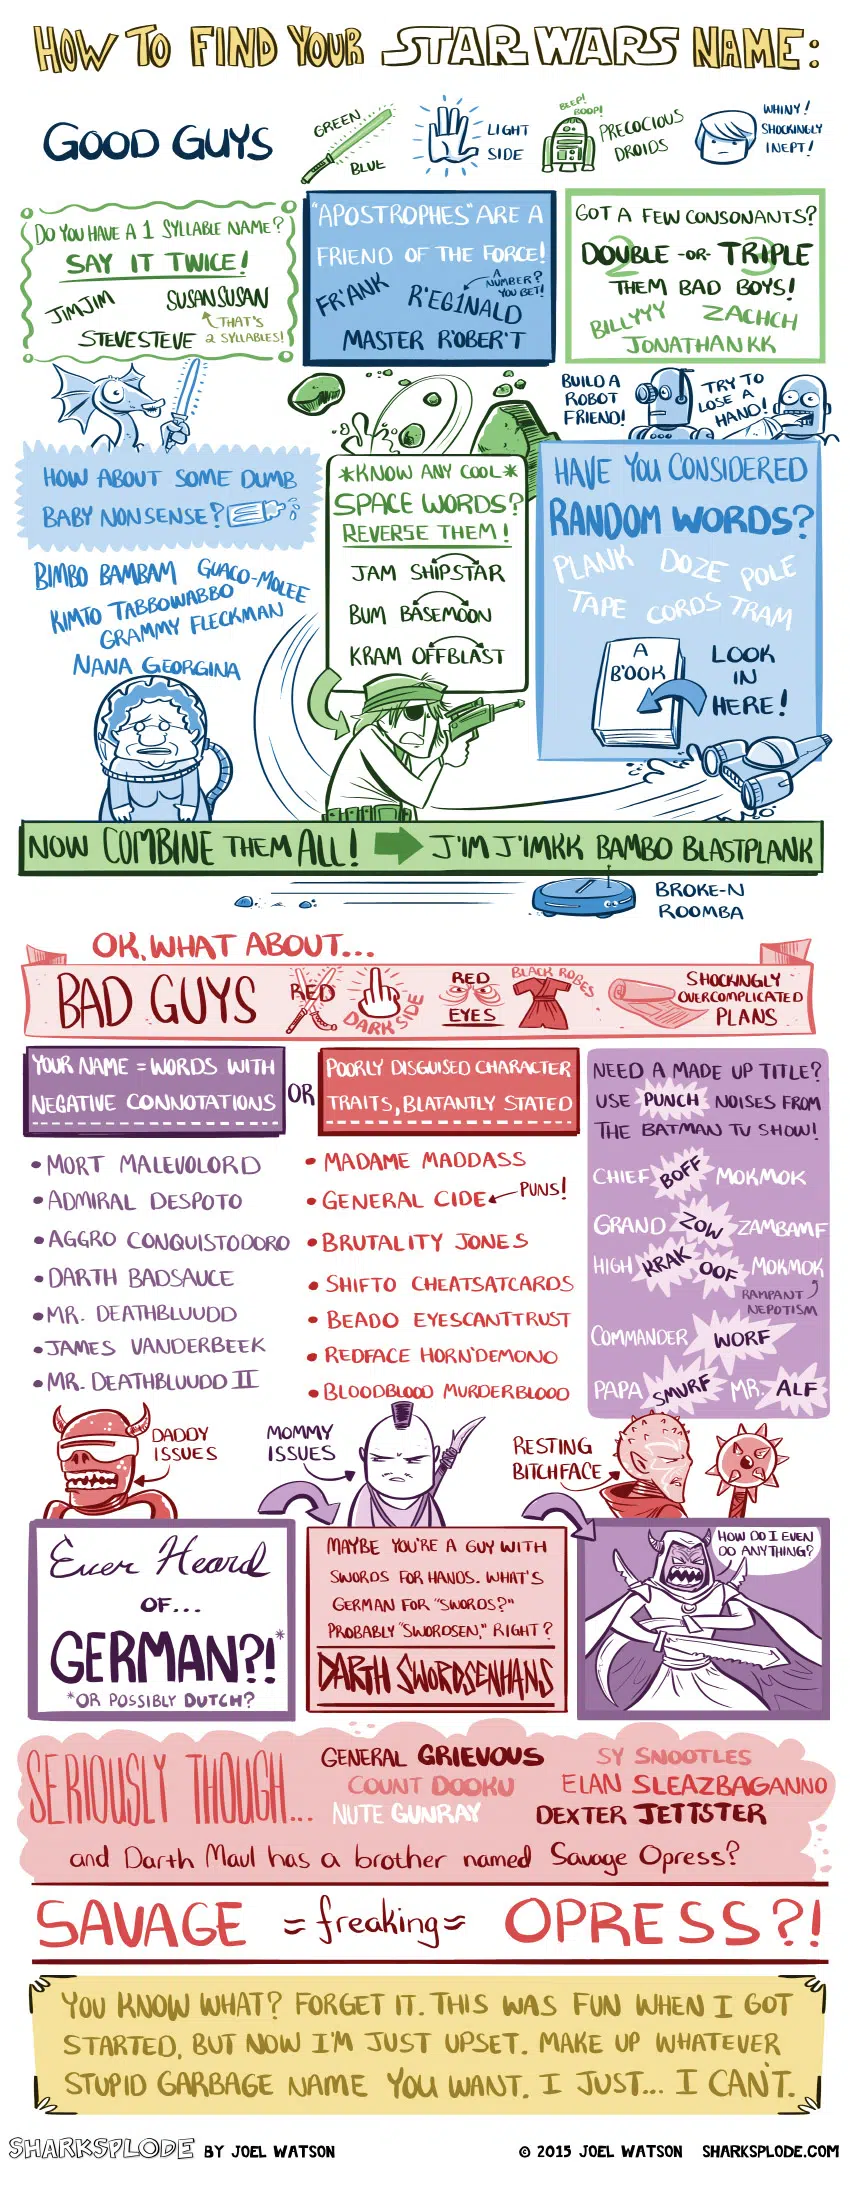 HOW TO FIND YOUR STAR WARS NAME:
GOOD GUYS
GREEN
BLUE
LIGHT
SIDE
BEEP!
BOOP!
PRECOCIOUS
DROIDS
WHINY!
SHOCKINGLY
INEPT!
DO YOU HAVE A 1 SYLLABLE NAME?
SAY IT TWICE!
JIMJIM
SUSANSUSAN
STEVESTEVE
THAT'S
2 SYLLABLES!
"APOSTROPHES" ARE A
FRIEND OF THE FORCE!
FR'ANK
R'EG1NALD
A
NUMBER?
YOU BET!
MASTER R'OBER'T
GOT A FEW CONSONANTS?
2 3
DOUBLE -OR- TRIPLE
THEM BAD BOYS!
BILLYYY
ZACHCH
JONATHANKK
BUILD A
ROBOT
FRIEND!
TRY TO
LOSE A
HAND!
HOW ABOUT SOME DUMB
BABY NONSENSE?
BIMBO BAMBAM
GUACO-MOLEE
KIMTO TABBOWABBO
GRAMMY FLECKMAN
NANA GEORGINA
*KNOW ANY COOL*
SPACE WORDS?
REVERSE THEM!
JAM SHIPSTAR
BUM BASEMOON
KRAM OFFBLAST
HAVE YOU CONSIDERED
RANDOM WORDS?
PLANK DOZE POLE
TAPE CORDS TRAM
A
B'OOK
LOOK
IN
HERE!
NOW COMBINE THEM ALL! J'IM J'IMKK BAMBO BLASTPLANK
BROKE-N
ROOMBA
OK, WHAT ABOUT...
BAD GUYS
RED
DARK SIDE
RED
EYES
BLACK ROBES
SHOCKINGLY
OVERCOMPLICATED
PLANS
YOUR NAME = WORDS WITH
NEGATIVE CONNOTATIONS
OR
POORLY DISGUISED CHARACTER
TRAITS, BLATANTLY STATED
• MORT MALEVOLORD
• ADMIRAL DESPOTO
• AGGRO CONQUISTODORO
• DARTH BADSAUCE
• MR. DEATHBLUUDD
• JAMES VANDERBEEK
• MR. DEATHBLUUDD II
• MADAME MADDASS
• GENERAL CIDE
PUNS!
• BRUTALITY JONES
• SHIFTO CHEATSATCARDS
• BEADO EYESCANTTRUST
• REDFACE HORN'DEMONO
• BLOODBLOOD MURDERBLOOD
NEED A MADE UP TITLE?
USE PUNCH NOISES FROM
THE BATMAN TV SHOW!
CHIEF BOFF MOKMOK
GRAND ZOW ZAMBAMF
HIGH KRAK OOF MOKMOK
RAMPANT
NEPOTISM
COMMANDER WORF
PAPA SMURF MR. ALF
DADDY
ISSUES
MOMMY
ISSUES
RESTING
BITCHFACE
Ever Heard
OF...
GERMAN?!*
*OR POSSIBLY DUTCH?
MAYBE YOU'RE A GUY WITH
SWORDS FOR HANDS. WHAT'S
GERMAN FOR "SWORDS?"
PROBABLY "SWORDSEN," RIGHT?
DARTH SWORDSENHANS
HOW DO I EVEN
DO ANYTHING?
SERIOUSLY THOUGH...
GENERAL GRIEVOUS
SY SNOOTLES
COUNT DOOKU
ELAN SLEAZBAGANNO
NUTE GUNRAY
DEXTER JETTSTER
and Darth Maul has a brother named Savage Opress?
SAVAGE =freaking= OPRESS?!
YOU KNOW WHAT? FORGET IT. THIS WAS FUN WHEN I GOT
STARTED, BUT NOW I'M JUST UPSET. MAKE UP WHATEVER
STUPID GARBAGE NAME YOU WANT. I JUST... I CAN'T.
SHARKSPLODE BY JOEL WATSON
© 2015 JOEL WATSON SHARKSPLODE.COM